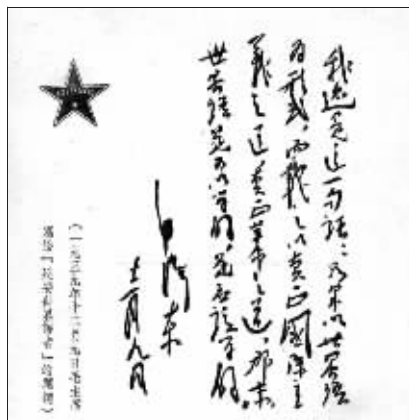 我还是这一句話：如果以世界语
为形式，而載之以真正國际主
义之道，真正革命之道，那末，
世界语是可以学的，是应該学的。
毛澤东
十二月九日
（一九三九年十二月九日毛主席
寫給「延安世界語者」的題詞）